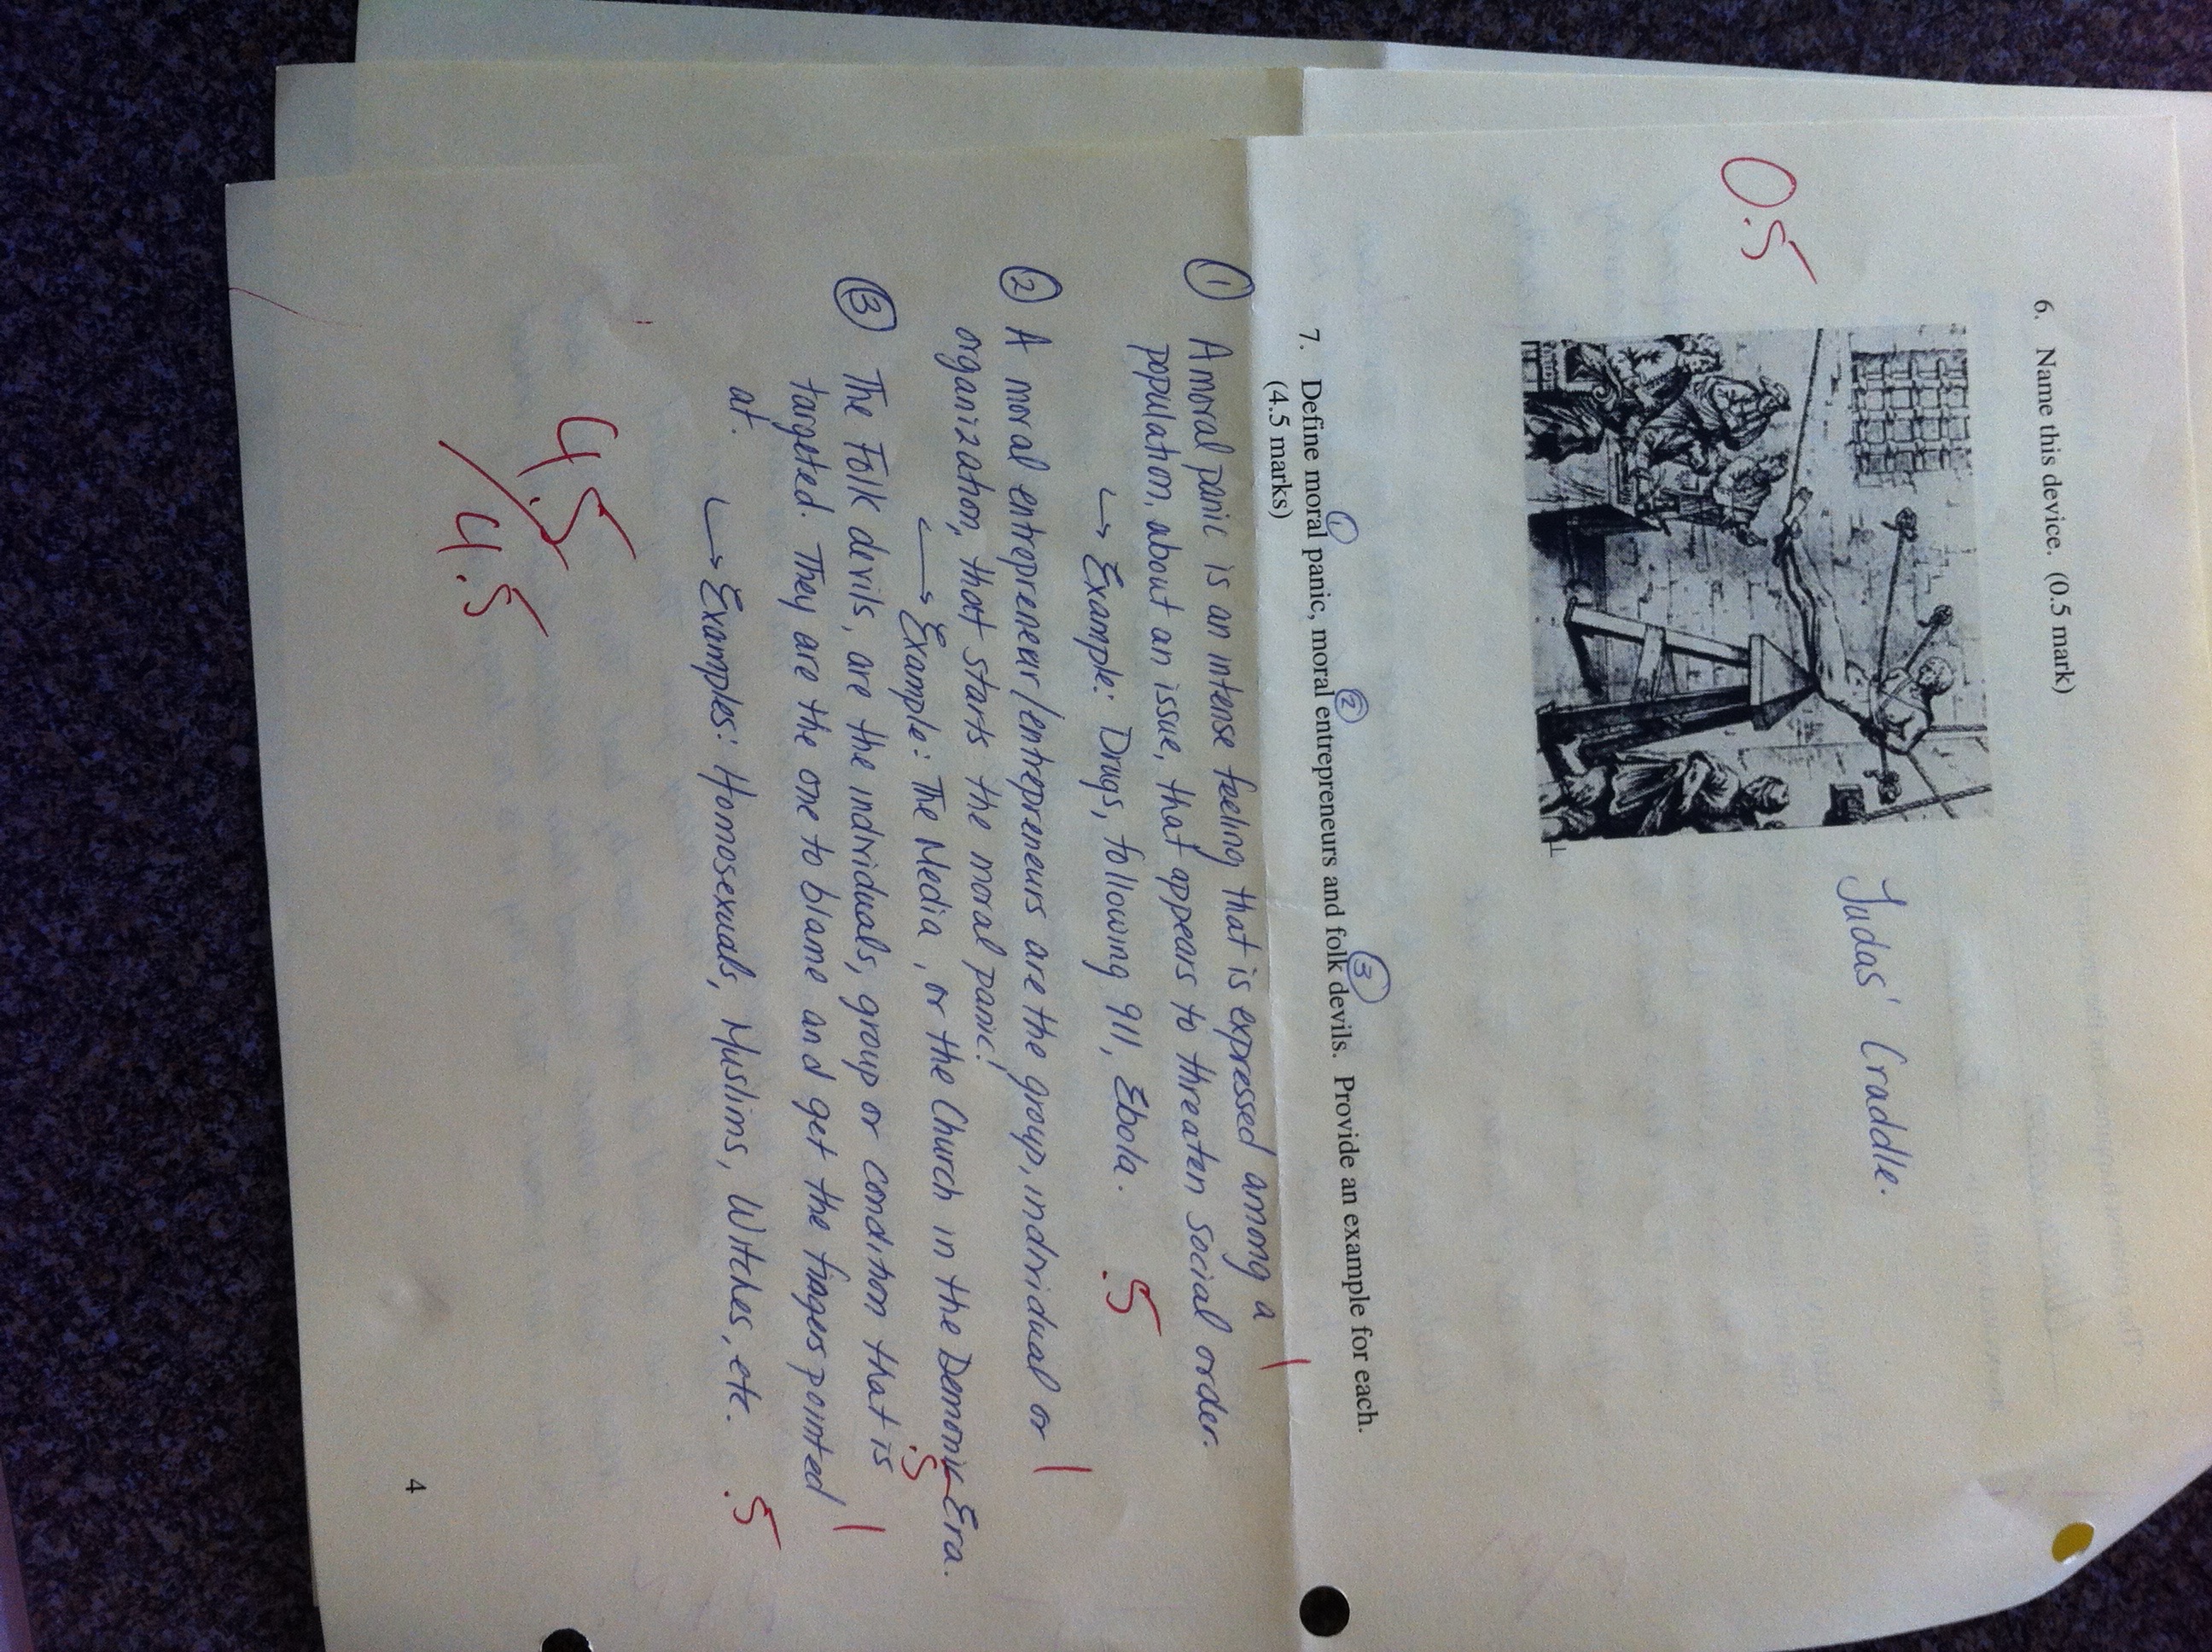 6. Name this device. (0.5 mark)
0.5
Judas' Craddle.
7. Define moral panic, moral entrepreneurs and folk devils. Provide an example for each.
① ② ③
(4.5 marks)
① A moral panic is an intense feeling that is expressed among a
1
population, about an issue, that appears to threaten social order.
↳ Example: Drugs, following 911, Ebola.
.5
② A moral entrepreneur/entrepreneurs are the group, individual or
1
organization, that starts the moral panic!
↳ Example: The Media, or the Church in the Demonic Era.
.5
③ The Folk divils, are the individuals, group or condition that is
targeted. They are the one to blame and get the fingers pointed
1
at.
↳ Examples: Homosexuals, Muslims, Witches, etc.
.5
4.5/4.5
4